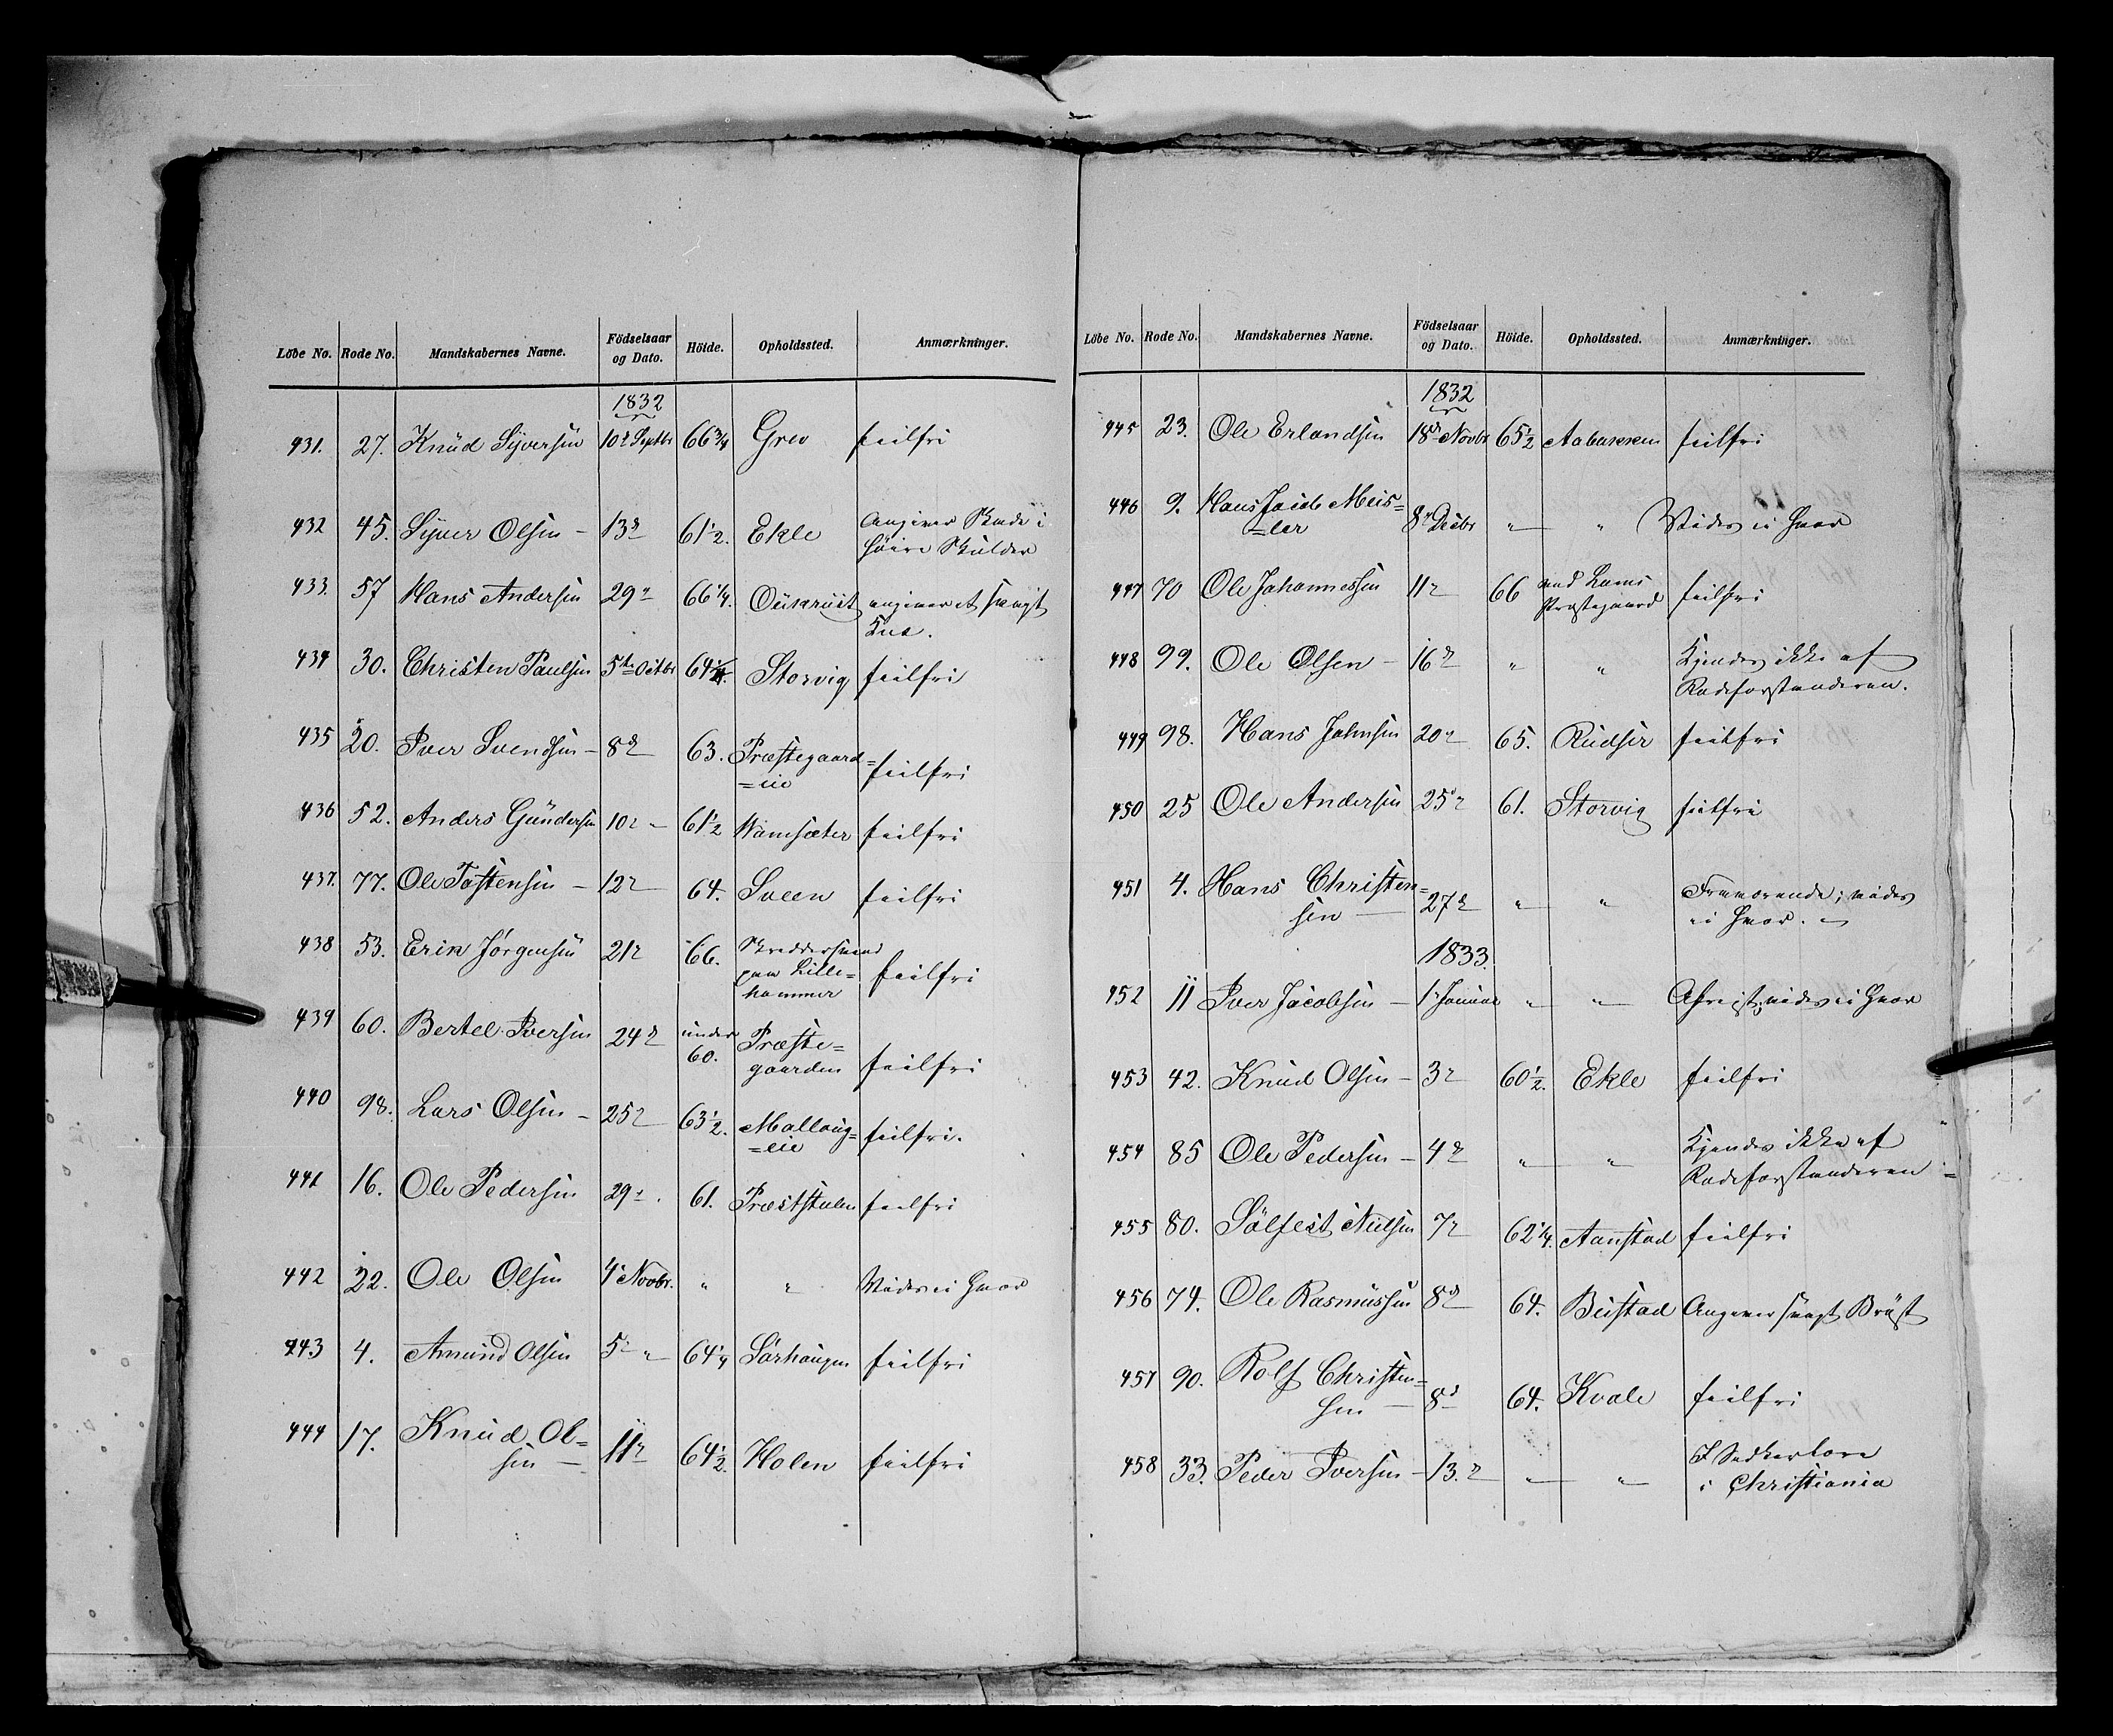 Löbe No. Rode No. Mandskabernes Navne. Födselsaar og Dato. Höide. Opholdssted. Anmærkninger.
1832
431. 27. Knud Syversen 10de Septbr 66 3/4 Grev feilfri
432 45. Syver Olsen – 13de 61 1/2. Ekle Angiver Skade i
høire Skulder
433. 57 Hans Andersen 29de 66 1/4. Oukrust angiver et svagt
Knæ.
434 30. Christen Paulsen 5te Octbr Storvig feilfri
435 20. Iver Svendsen – 8de 63. Præstegaard=
=eie feilfri
436 52. Anders Gundersen 10de – 61 1/2 Namsæter feilfri
437. 77. Ole Tostensen – 12de 64. Sveen feilfri
438 53. Erik Jörgensen 21de 66. Skreddersvend
paa Lille=
hammer feilfri
439 60. Bertel Iversen 24de under
60. Præste=
gaarden feilfri
440 98. Lars Olsen – 25de 63 1/2. Mallaug=
=eie feilfri.
441 16. Ole Pedersen 29de. 61. Præststulen feilfri
442 22. Ole Olsen 4de Novbr. " " Vides ei hvor
443 4. Amund Olsen 5de " 64 1/4 Sørhaugen feilfri
444 17. Knud Ol=
sen – 11de 64 1/2. Holen feilfri
Löbe No. Rode No. Mandskabernes Navne. Födselsaar og Dato. Höide. Opholdssted. Anmærkninger.
1832
445 23. Ole Erlandsen 18de Novbr 65 1/2 Aabakken feilfri
446 9. Hans Meis=
=ler 8de Decbr " " Vides ei hvor
447 70 Ole Johannessen 11de 66 ved Loms
Præstegaard feilfri
448 99. Ole Olsen – 16de " " Kjendes ikke af
Rodeforstanderen.
449 98. Hans Johnsen 20de 65. Rudsir feilfri
450 25 Ole Andersen 25de 61. Storvig feilfri
451 4. Hans Christen=
sen – 27de " " Fraværende; vides
ei hvor. –
1833.
452 11 Iver Jacobsen – 1de Januar " " Afreist, vides ei hvor
453 42. Knud Olsen – 3de 60 1/2. Ekle feilfri
454 85 Ole Pedersen – 4de " " Kjendes ikke af
Rodeforstanderen
455 80. Sölfest Nielsen 7de 62 1/4. Aanstad feilfri
456 74. Ole Rasmussen 8de 64. Bustad Angiver svagt Bryst
457 90. Rolf Christen=
sen – 8de 64. Kvale feilfri
458 33. Peder Iversen – 13de " " I
i Christiania